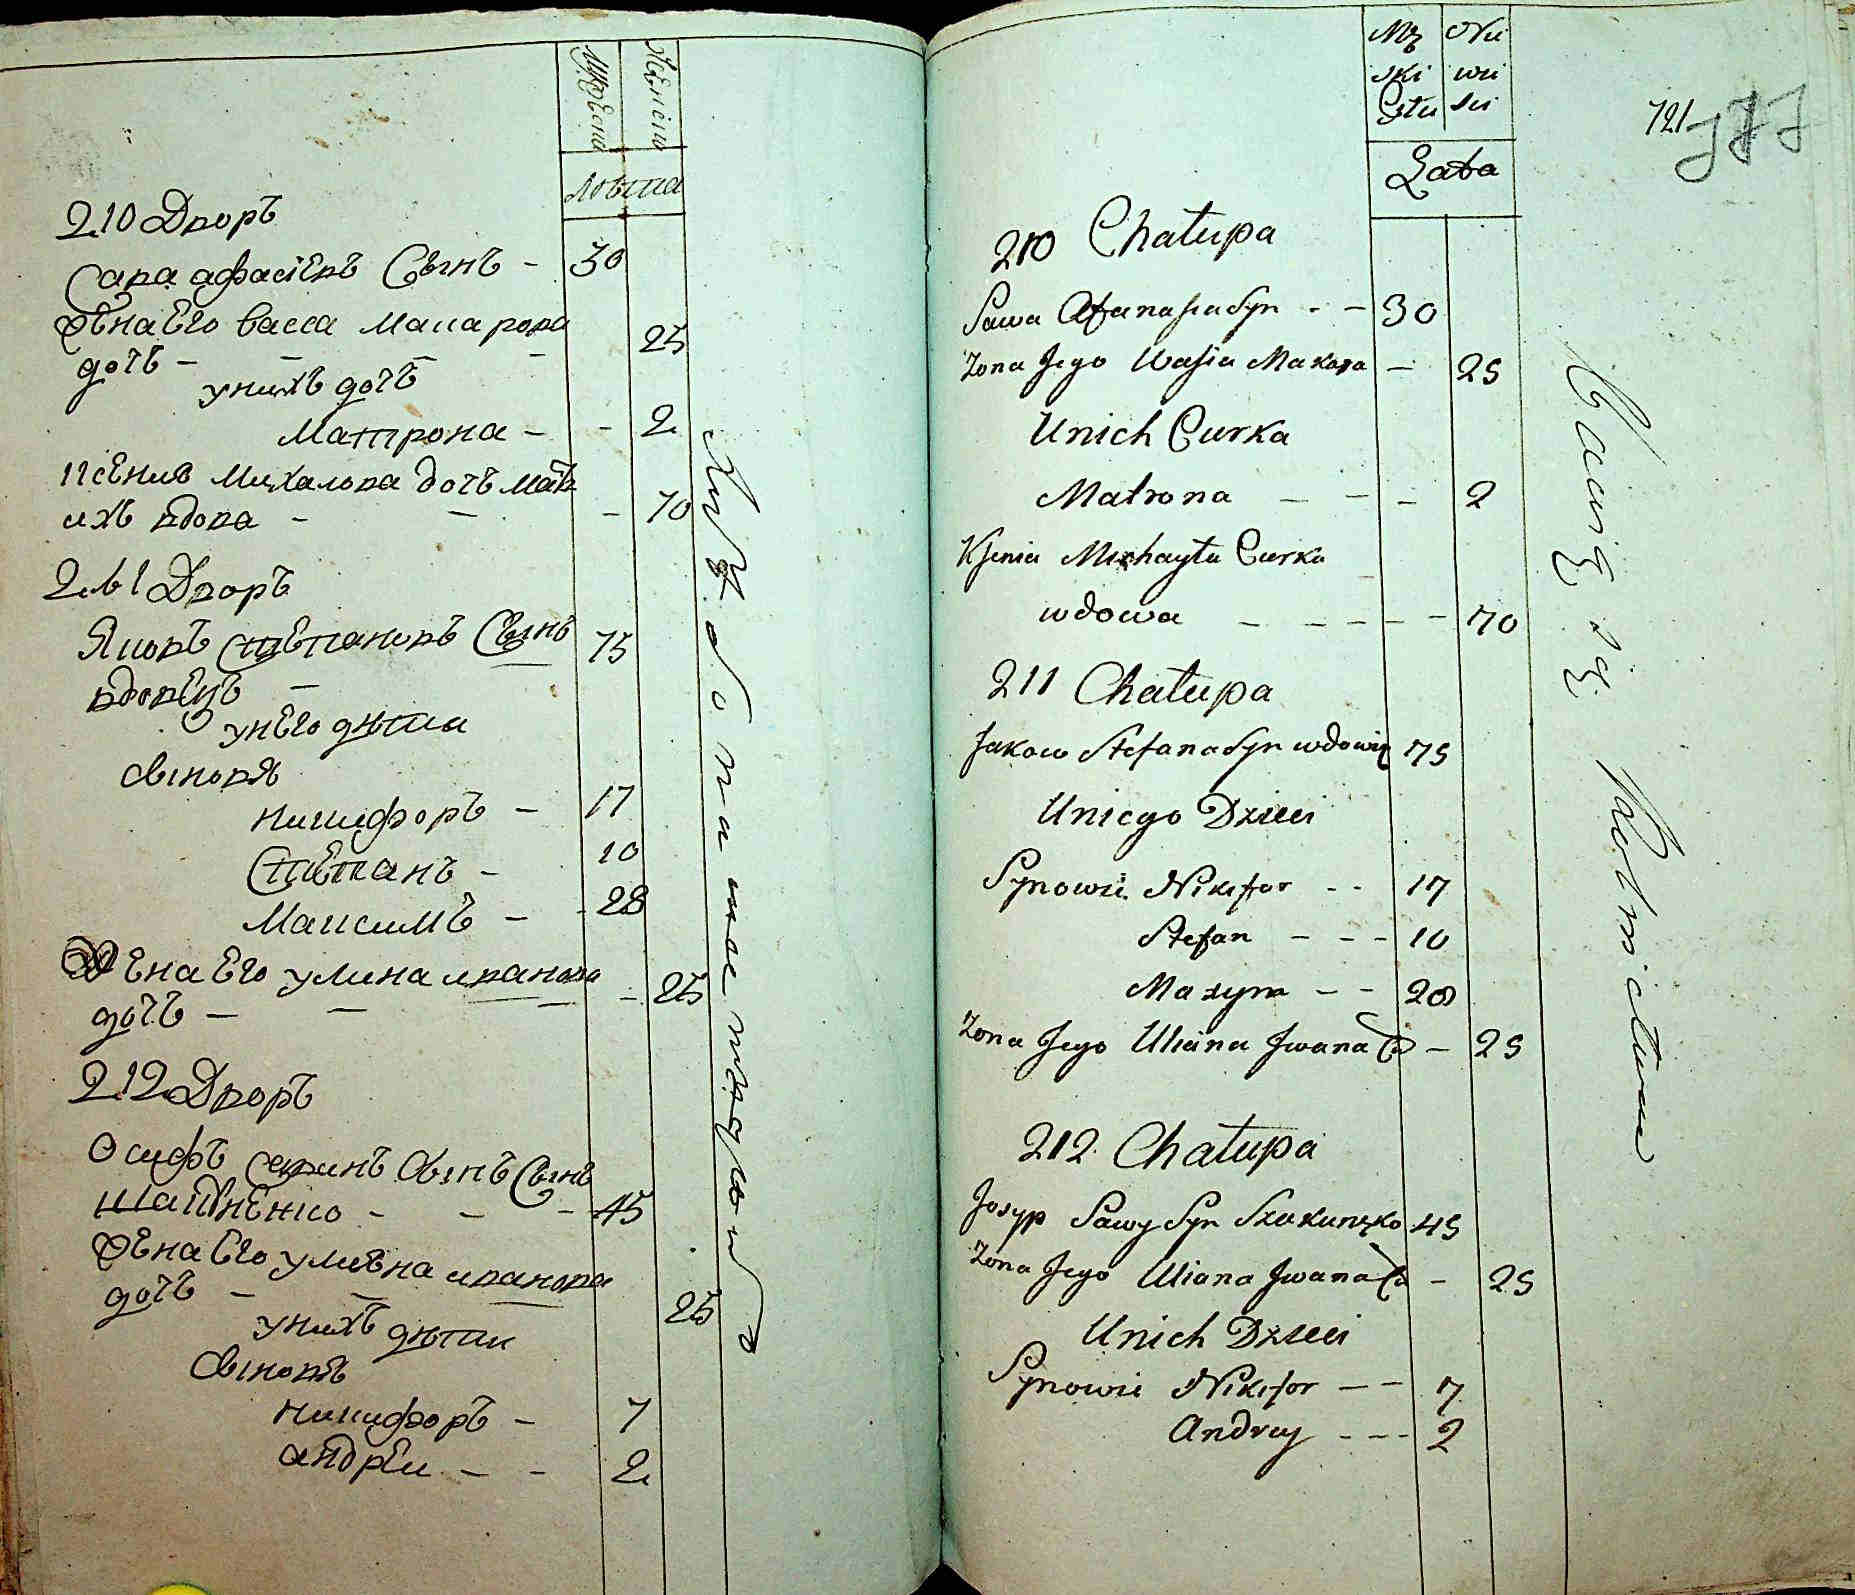 Мужеска
Женска
Лѣта
210 Дворъ
Сава афасіевъ Сынъ - 30
Жена Его васса Макарова
дочь - - - - 25
унихъ дочь
Матрона - - 2
Ксения Михалова дочь мать
ихъ вдова - - - 70
211 Дворъ
Яковъ Степановъ Сынъ 75
вдовецъ -
унего дѣти
Сыновя
никифоръ - 17
Степанъ - 10
Максимъ - - 28
Жена Его улияна иванова
дочь - - - - 25
212 Дворъ
Осифъ Савинъ Сынъ Сынъ
- - - 45
Жена Его улияна иванова
дочь - - 25
унихъ дѣти
Сыновя
никифоръ - 7
андрей - - 2
Mę Nie
ski wie
Stu ści
Lata
721
177
210 Chałupa
Sawa Afanasia Syn - - 30
Żona Jego Wasia Makara - 25
Unich Curka
Matrona - - - 2
Ksenia Michayła Curka
wdowa - - - - - 70
211 Chałupa
Jakow Stefana Syn wdowiec 75
Uniego Dzieci
Synowie Nikifor - - 17
Stefan - - - 10
Maxym - - 28
Żona Jego Uliana Iwana C - 25
212 Chałupa
Josyp Sawy Syn 45
Żona Jego Uliana Iwana C - 25
Unich Dzieci
Synowie Nikifor - - 7
Andrey - - - 2